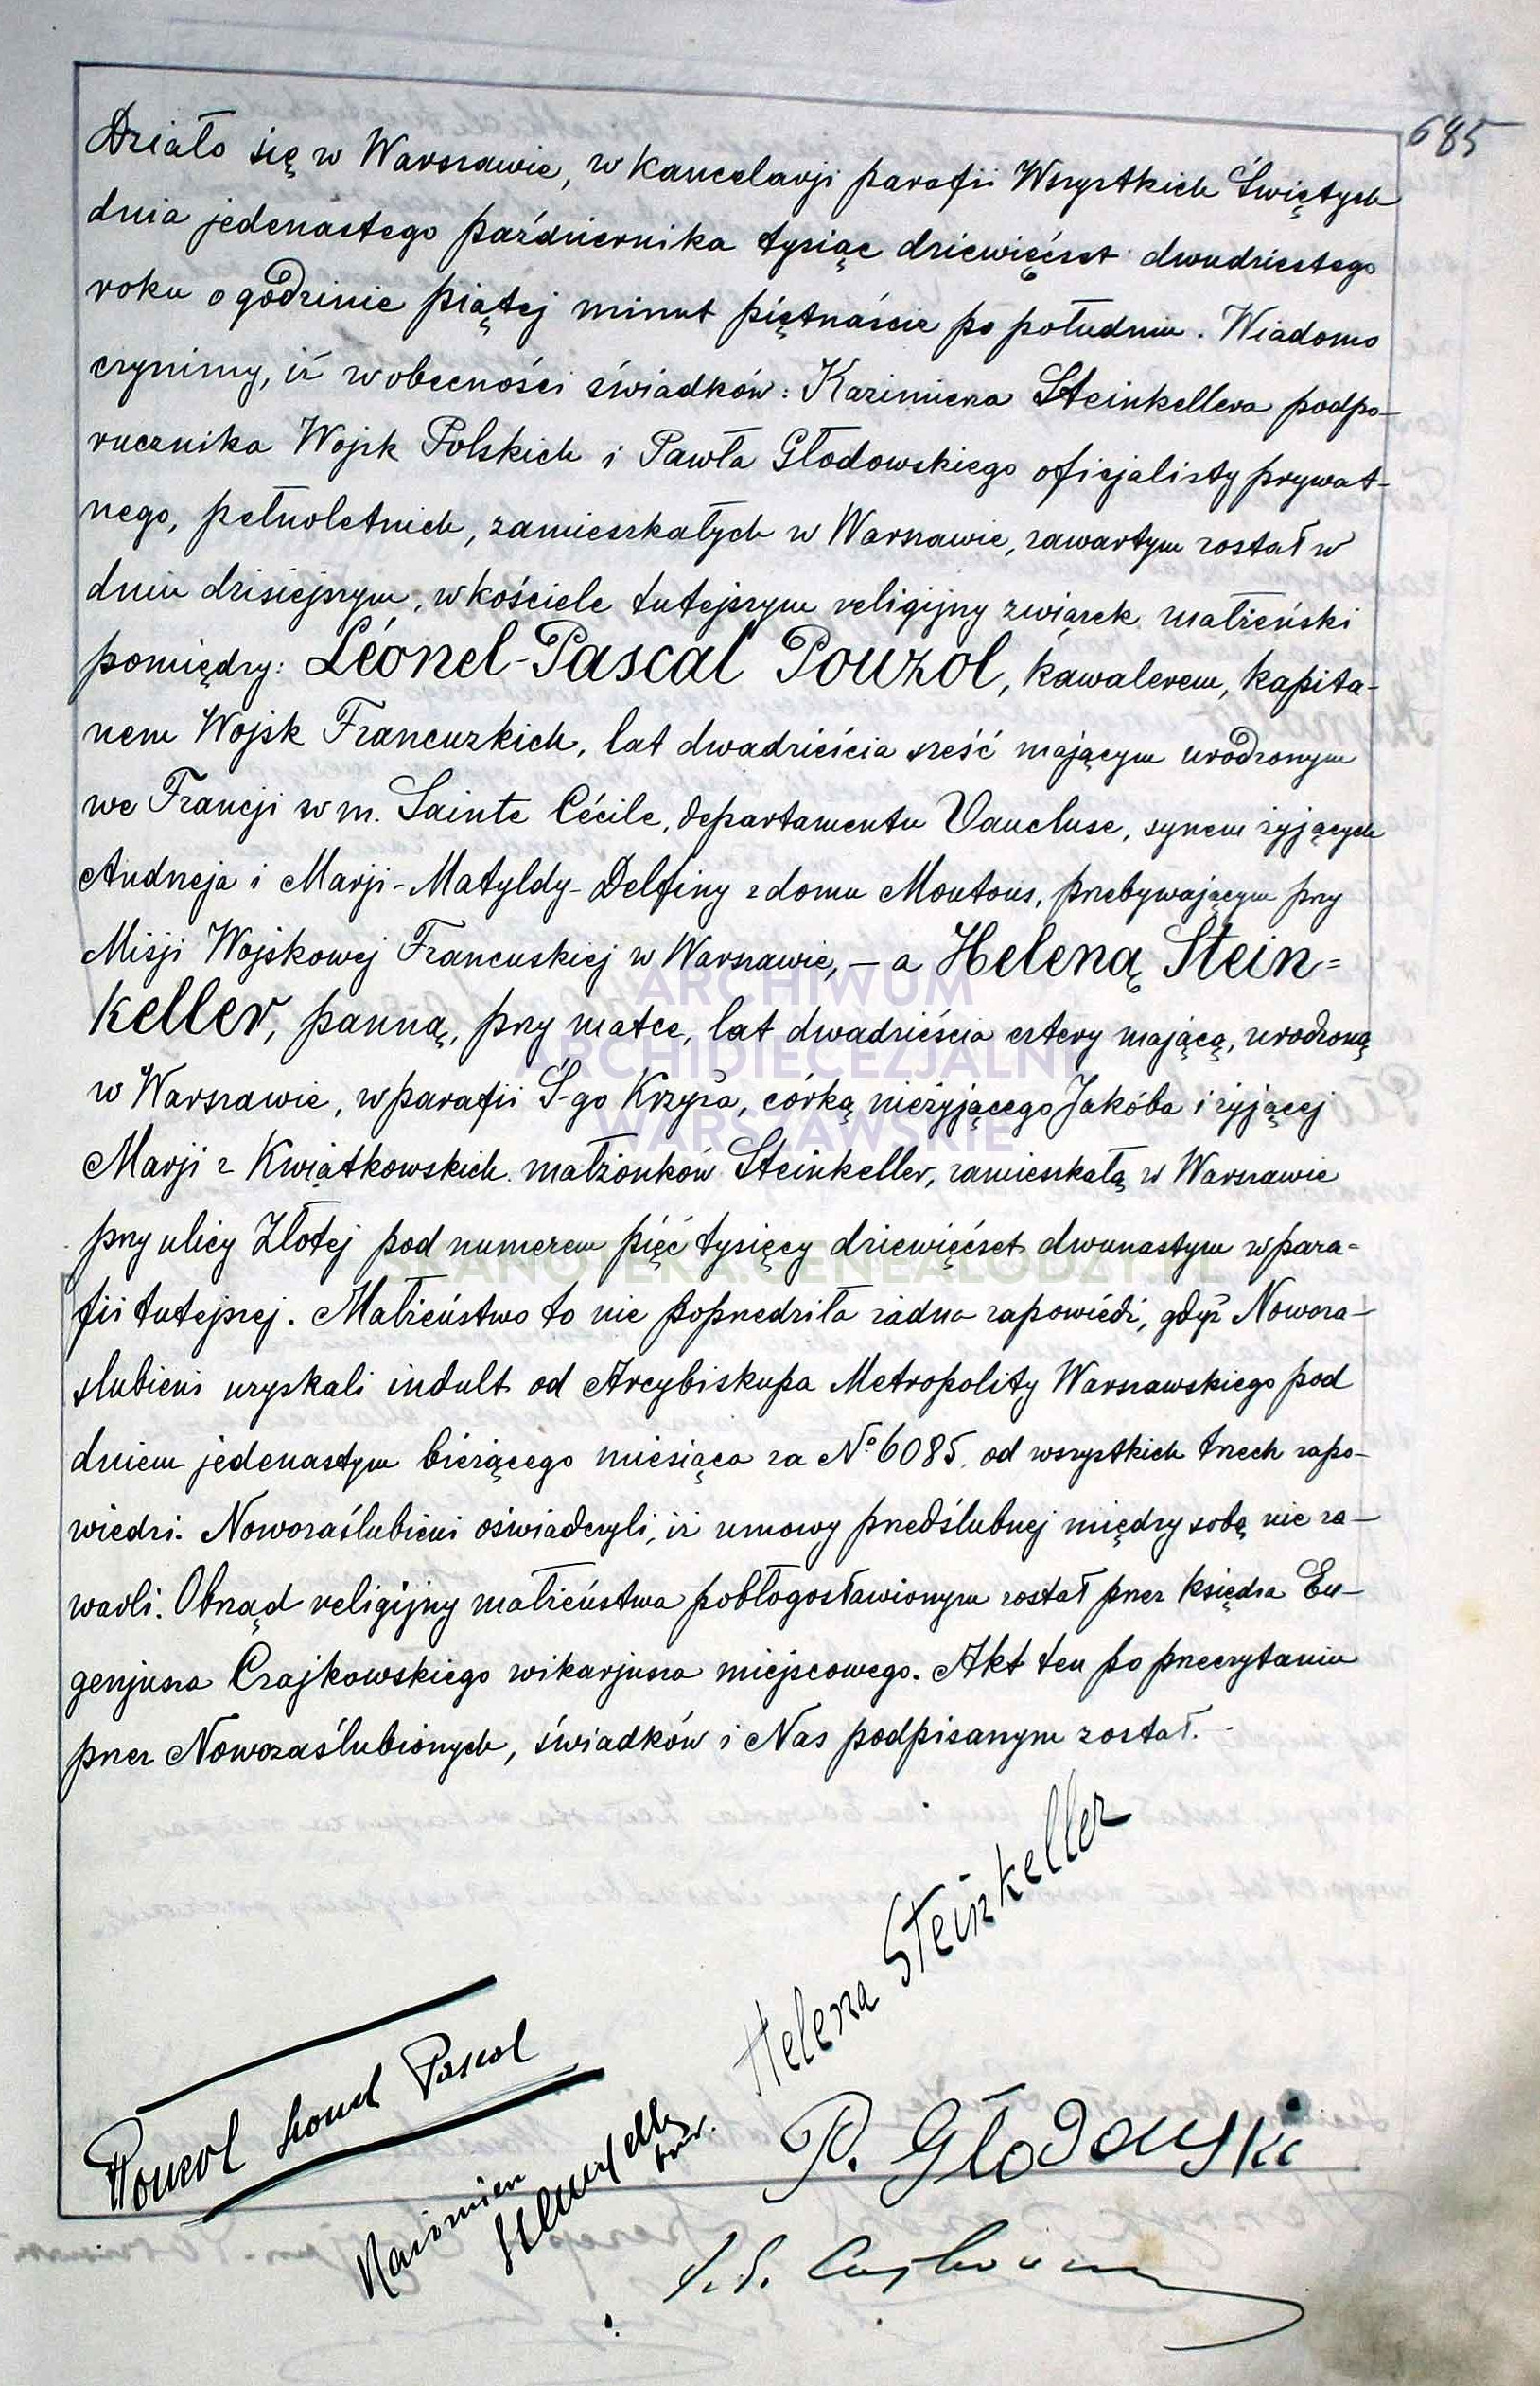 685
Działo się w Warszawie, w kancelarji parafii Wszystkich Świętych
dnia jedenastego października tysiąc dziewięćset dwudziestego
roku o godzinie piątej minut piętnaście po południu. Wiadomo
czynimy, iż w obecności świadków: Kazimierza Steinkellera podpo-
rucznika Wojsk Polskich i Pawła Głodowskiego oficjalisty prywat-
nego, pełnoletnich, zamieszkałych w Warszawie, zawartym został w
dniu dzisiejszym, w kościele tutejszym religijny związek małżeński
pomiędzy: Léonel-Pascal Pouzol, kawalerem, kapita-
nem Wojsk Francuzkich, lat dwadzieścia sześć mającym urodzonym
we Francji w m. Sainte Cécile, departamentu Vaucluse, synem żyjących
Andrzeja i Marji-Matyldy-Delfiny z domu Moutons, przebywającym przy
Misji Wojskowej Francuskiej w Warszawie, — a Heleną Stein=
keller, panną, przy matce, lat dwadzieścia cztery mającą, urodzoną
w Warszawie, w parafii Ś-go Krzyża, córką nieżyjącego Jakóba i żyjącej
Marji z Kwiatkowskich małżonków Steinkeller, zamieszkałą w Warszawie
przy ulicy Złotej pod numerem pięć tysięcy dziewięćset dwunastym w para-
fii tutejszej. Małżeństwo to nie poprzedziła żadna zapowiedź, gdyż Nowoza-
ślubieni uzyskali indult od Arcybiskupa Metropolity Warszawskiego pod
dniem jedenastym bieżącego miesiąca za No 6085. od wszystkich trzech zapo-
wiedzi. Nowozaślubieni oświadczyli, iż umowy przedślubnej między sobą nie za-
warli. Obrząd religijny małżeństwa pobłogosławionym został przez księdza Eu-
genjusza Czajkowskiego wikarjusza miejscowego. Akt ten po przeczytaniu
przez Nowozaślubionych, świadków i Nas podpisanym został.
Helena Steinkeller
Pouzol Leonel Pascal
Kazimierz
P. Głodowski
ARCHIWUM
ARCHIDIECEZJALNE
WARSZAWSKIE
SKANOTEKA.GENEALODZY.PL